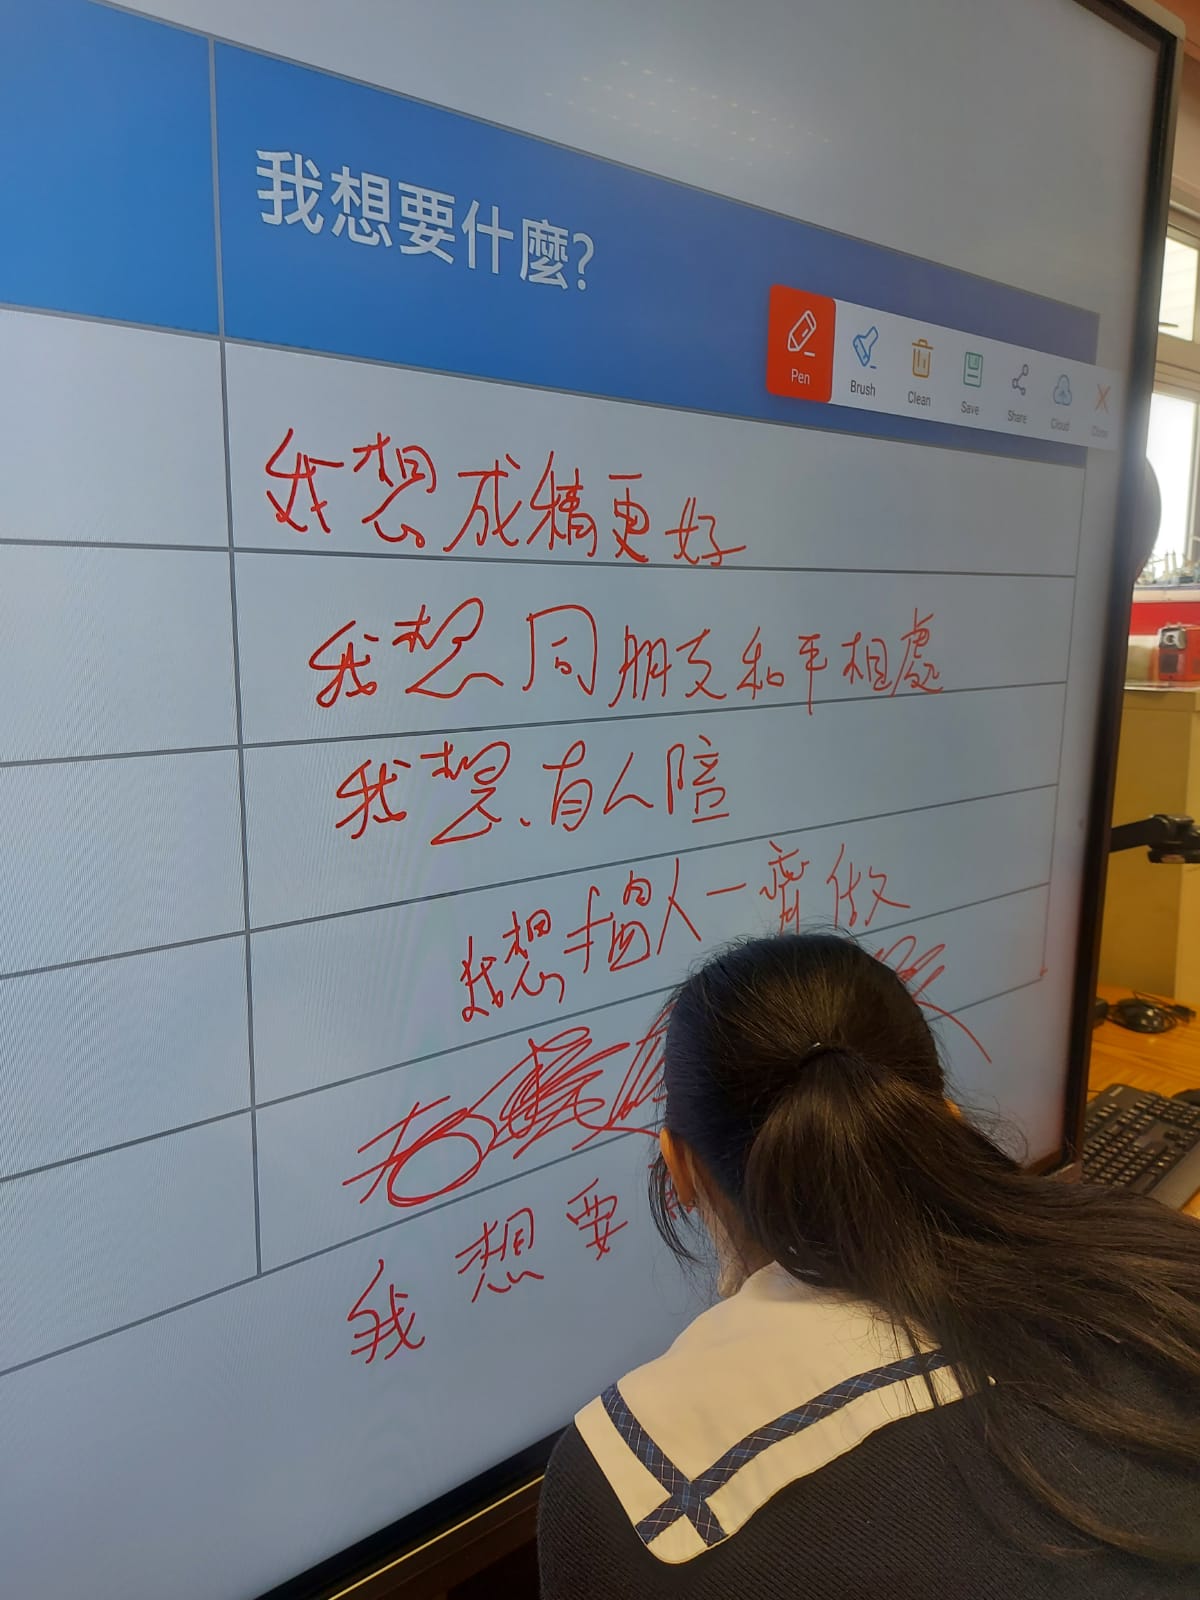 我想要什麼?
Pen Brush Clean Save Share Cloud Close
我想成積更好
我想同朋友和平相處
我想有人陪
我想搵人一齊做
我想要